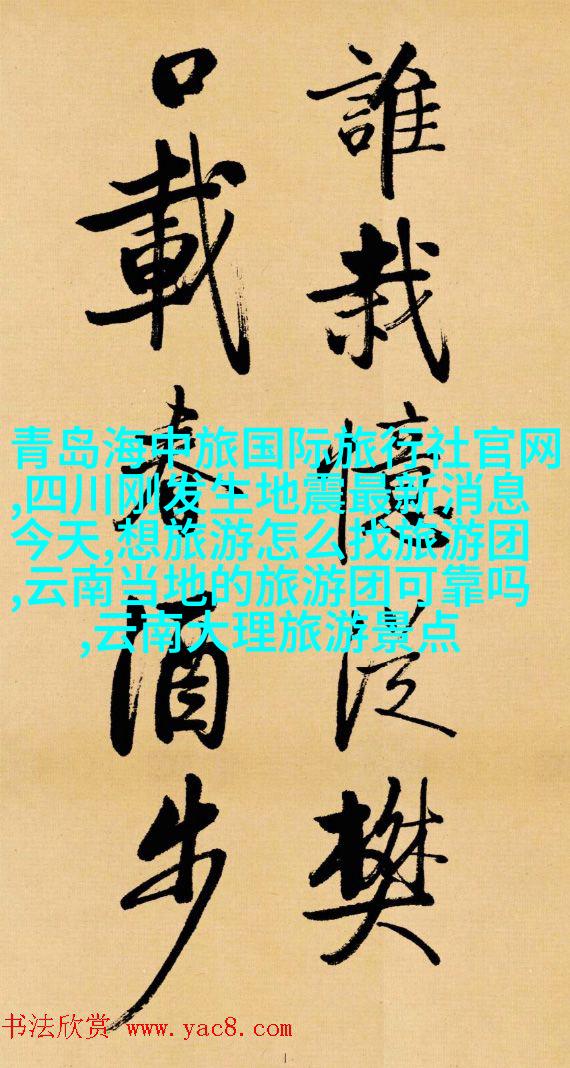 誰栽憶從樊
口載春酒步
青岛海中旅国际旅行社官网
,四川刚发生地震最新消息
今天,想旅游怎么找旅游团
,云南当地的旅游团可靠吗
,云南大理旅游景点
书法欣赏 www.yac8.com